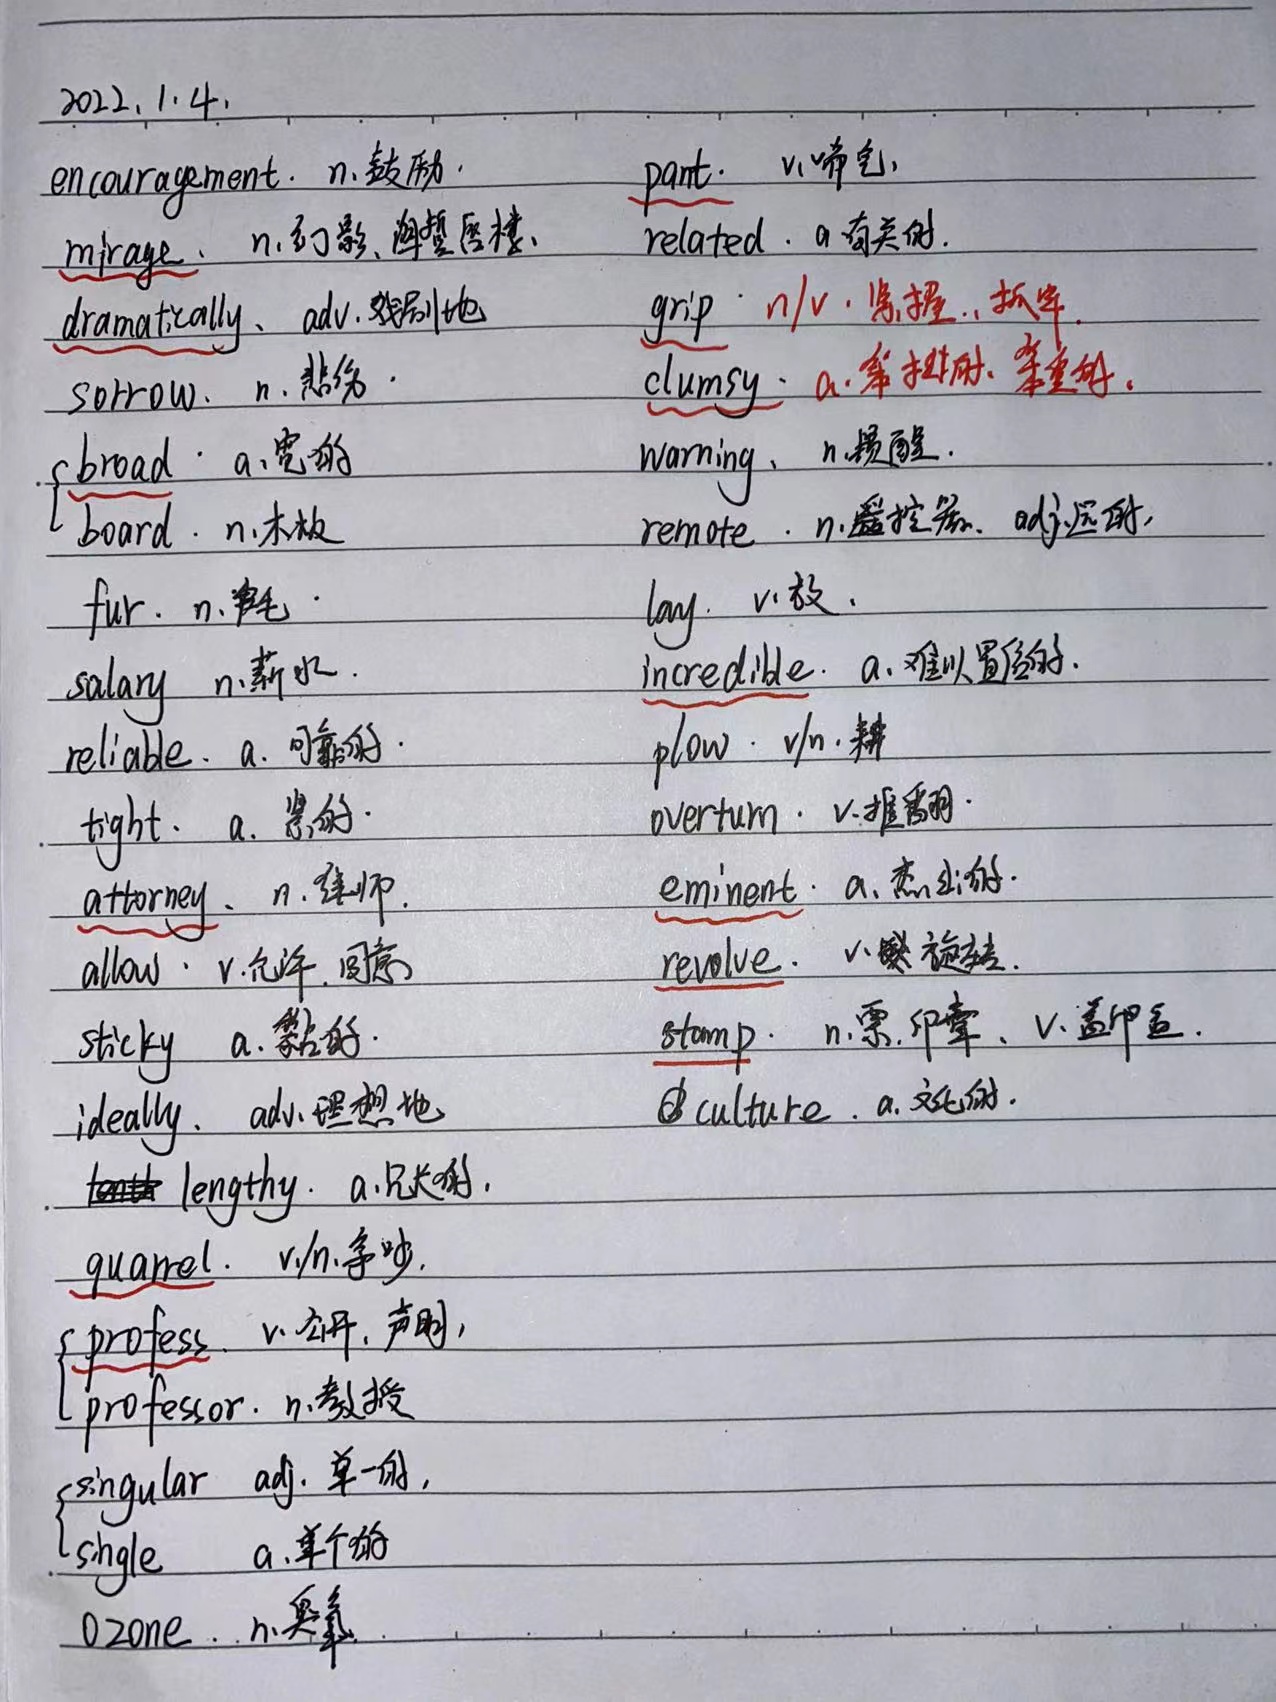 2022.1.4.
encouragement. n.鼓励.
mirage. n.幻影、海蜃唇楼、
dramatically、 adv.戏剧地
sorrow. n.悲伤.
broad. a.宽的
board. n.木板
fur. n.
salary n.薪水.
reliable. a.可靠的.
tight. a.紧的.
attorney、 n.律师.
allow. v.允许.同意
sticky a.黏的.
ideally、 adv.理想地
lengthy. a.冗长的.
quarrel. v./n.争吵.
profess. v.公开、声明,
professor. n.教授
singular adj.单一的,
single a.单个的
ozone. n.臭氧
pant. v.
related. a.有关的.
grip. n/v.紧握、抓牢.
clumsy. a.笨拙的、笨重的.
warning、 n.提醒.
remote. n.遥控器、 adj.远的,
lay. v.放.
incredible. a.难以置信的.
plow. v/n.耕
overturn. v.推翻.
eminent. a.杰出的.
revolve. v.旋转.
stamp. n.票.印章、 v.盖印
culture. a.文化的.